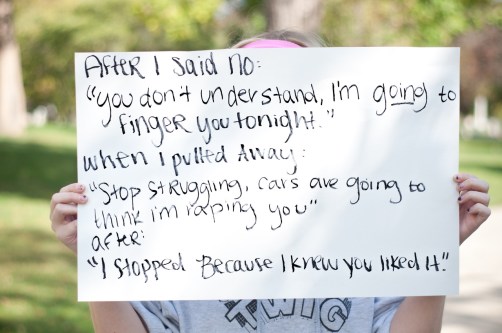 After I said no:
"you don't understand, I'm going to
finger you tonight."
when I pulled Away:
"Stop struggling, cars are going to
think i'm raping you"
after:
"I stopped Because I knew you liked it."